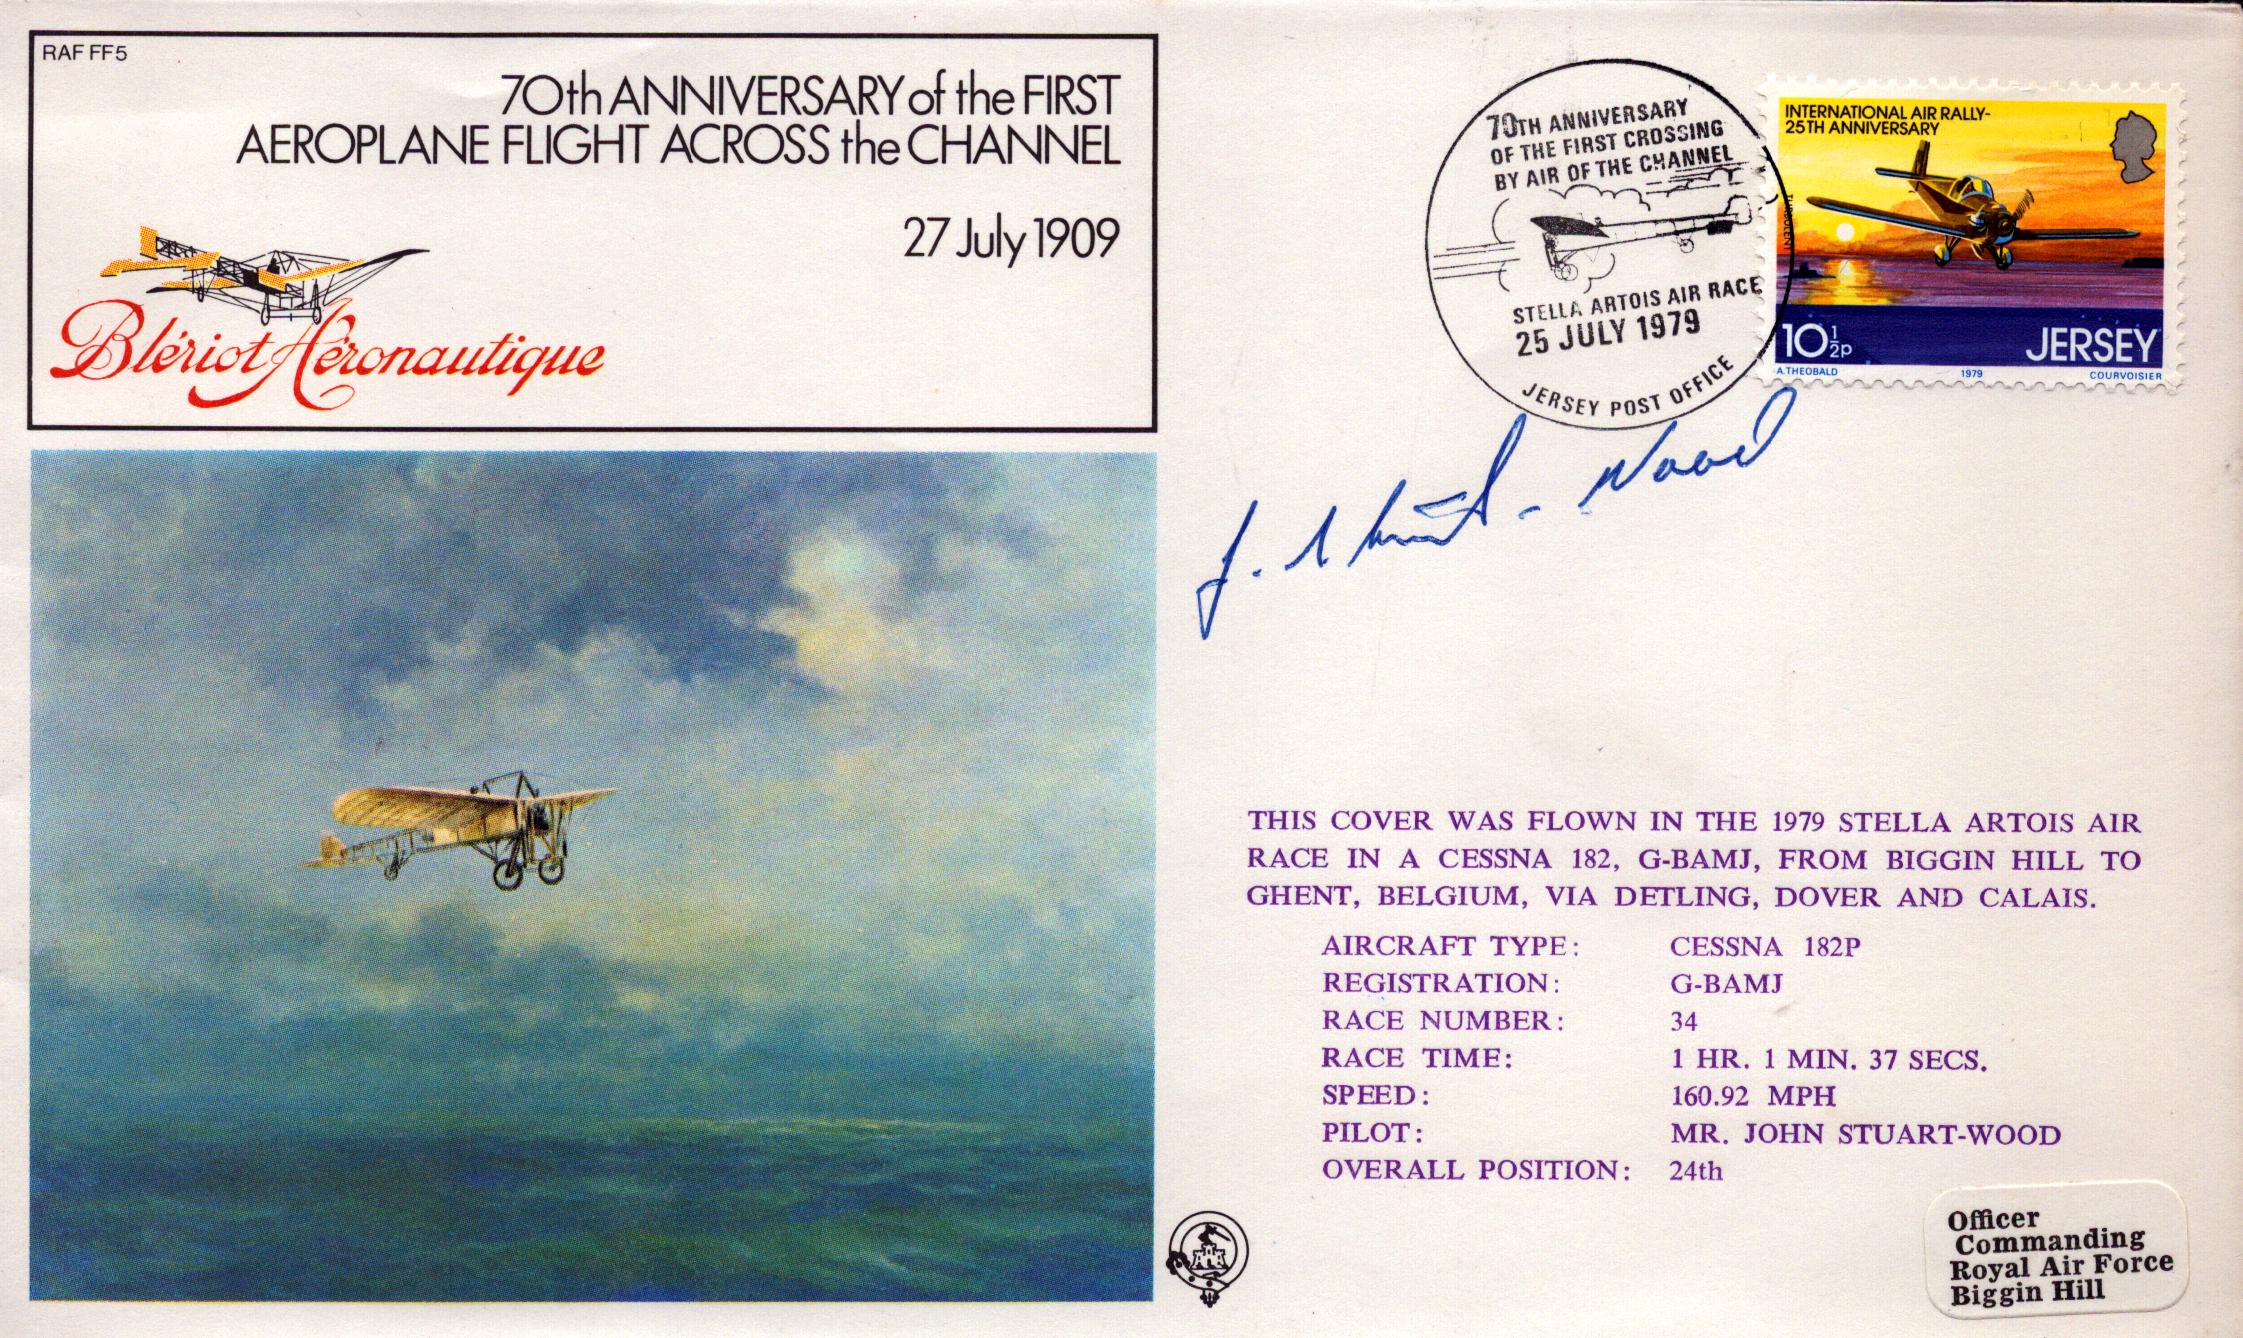 RAF FF5
70th ANNIVERSARY of the FIRST
AEROPLANE FLIGHT ACROSS the CHANNEL
27 July 1909
Blériot Aéronautique
70TH ANNIVERSARY
OF THE FIRST CROSSING
BY AIR OF THE CHANNEL
STELLA ARTOIS AIR RACE
25 JULY 1979
JERSEY POST OFFICE
INTERNATIONAL AIR RALLY-
25TH ANNIVERSARY
TURBULENT
10½p JERSEY
A.THEOBALD 1979 COURVOISIER
J. Stuart-Wood
THIS COVER WAS FLOWN IN THE 1979 STELLA ARTOIS AIR
RACE IN A CESSNA 182, G-BAMJ, FROM BIGGIN HILL TO
GHENT, BELGIUM, VIA DETLING, DOVER AND CALAIS.
AIRCRAFT TYPE: CESSNA 182P
REGISTRATION: G-BAMJ
RACE NUMBER: 34
RACE TIME: 1 HR. 1 MIN. 37 SECS.
SPEED: 160.92 MPH
PILOT: MR. JOHN STUART-WOOD
OVERALL POSITION: 24th
Officer
Commanding
Royal Air Force
Biggin Hill